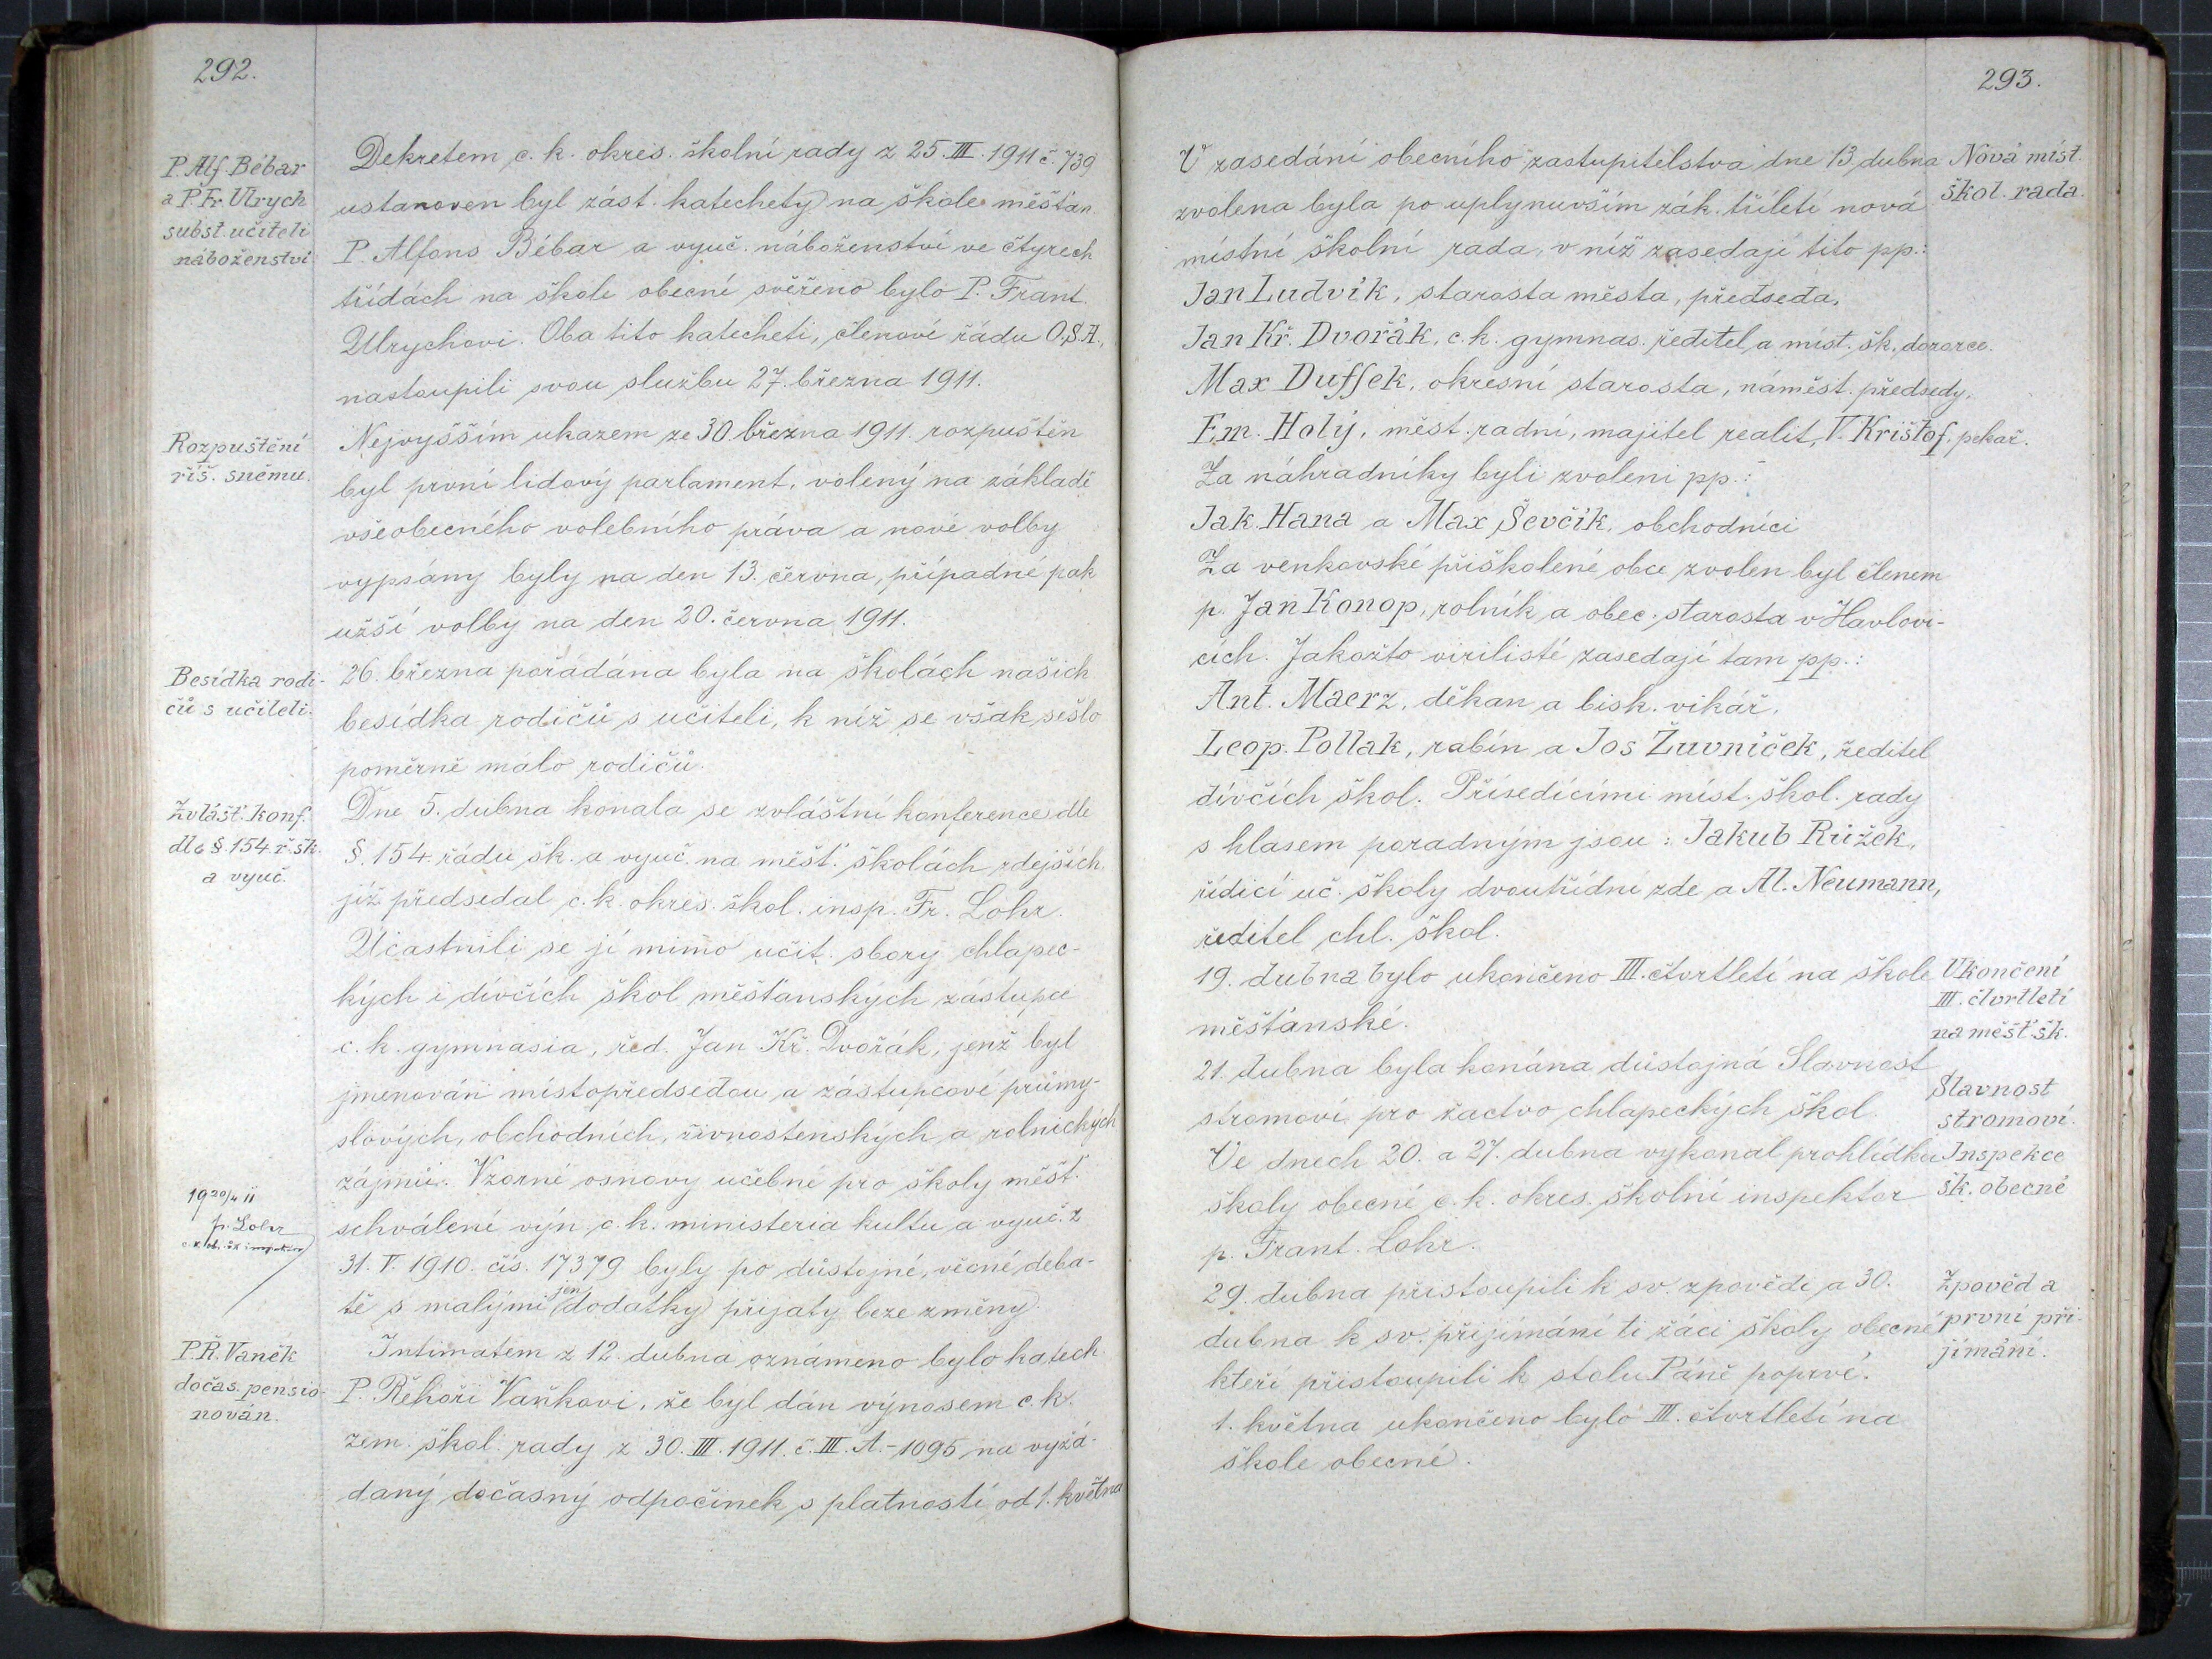 292.
P. Alf. Bébar
a P. Fr. Ulrych
subst. učiteli
náboženství
Dekretem c. k. okres. školní rady z 25. III. 1911 č. 739
ustanoven byl zást. katechety na škole měšťan.
P. Alfons Bébar a vyuč. náboženství ve čtyrech
třídách na škole obecné svěřeno bylo P. Frant.
Ulrychovi. Oba tito katecheti, členové řádu O.S.A.,
nastoupili svou službu 27. března 1911.
Rozpuštění
říš. sněmu.
Nejvyšším ukazem ze 30. března 1911. rozpuštěn
byl první lidový parlament, volený na základě
všeobecného volebního práva a nové volby
vypsány byly na den 13. června, případné pak
užší volby na den 20. června 1911.
Besídka rodi-
čů s učiteli.
26. března pořádána byla na školách našich
besídka rodičů s učiteli, k níž se však sešlo
poměrně málo rodičů.
Zvlášt. konf.
dle §. 154. ř. šk.
a vyuč.
Dne 5. dubna konala se zvláštní konference dle
§. 154. řádu šk. a vyuč. na měšť. školách zdejších,
jíž předsedal c. k. okres. škol. insp. Fr. Lohr.
Účastnili se jí mimo učit. sbory chlapec-
kých i dívčích škol měšťanských zástupce
c. k. gymnasia, řed. Jan Kř. Dvořák, jenž byl
jmenován místopředsedou a zástupcové průmy-
slových, obchodních, živnostenských a rolnických
zájmů. Vzorné osnovy učebné pro školy měšť.
schválené výn. c. k. ministeria kultu a vyuč. z
31. V. 1910. čís. 17379 byly po důstojné, věcné deba-
tě s malými jen dodatky přijaty beze změny.
19 20/4 11
Fr. Lohr
c. k. okr. šk. inspektor
P. Ř. Vaněk
dočas. pensio-
nován.
Intimatem z 12. dubna oznámeno bylo katech.
P. Řehoři Vaňkovi, že byl dán výnosem c. k.
zem. škol. rady z 30. III. 1911. č. III. A.-1095 na vyžá-
daný dočasný odpočinek s platností od 1. května
293.
V zasedání obecního zastupitelstva dne 13. dubna
zvolena byla po uplynuvším zák. tříletí nová
místní školní rada, v níž zasedají tito pp.:
Nová míst.
škol. rada.
Jan Ludvík, starosta města, předseda,
Jan Kř. Dvořák, c. k. gymnas. ředitel a míst. šk. dozorce.
Max Duffek, okresní starosta, náměst. předsedy,
Em. Holý, měst. radní, majitel realit, V. Krištof, pekař.
Za náhradníky byli zvoleni pp.:
Jak. Hana a Max Ševčík, obchodníci
Za venkovské přiškolené obce zvolen byl členem
p. Jan Konop, rolník a obec. starosta v Havlovi-
cích. Jakožto virilisté zasedají tam pp.:
Ant. Maerz, děkan a bisk. vikář.
Leop. Pollak, rabín a Jos Žuvníček, ředitel
dívčích škol. Přísedícími míst. škol. rady
s hlasem poradným jsou: Jakub Růžek,
řídící uč. školy dvoutřídní zde a Al. Neumann,
ředitel chl. škol.
19. dubna bylo ukončeno III. čtvrtletí na škole
měšťanské.
Ukončení
III. čtvrtletí
na měšť. šk.
21. dubna byla konána důstojná Slavnost
stromoví pro žactvo chlapeckých škol.
Slavnost
stromoví.
Ve dnech 20. a 27. dubna vykonal prohlídku
školy obecné c. k. okres. školní inspektor
p. Frant. Lohr.
Inspekce
šk. obecné
29. dubna přistoupili k sv. zpovědi a 30.
dubna k sv. přijímání ti žáci školy obecné
kteří přistoupili k stolu Páně poprvé.
Zpověd a
první při-
jímání.
1. května ukončeno bylo III. čtvrtletí na
škole obecné.